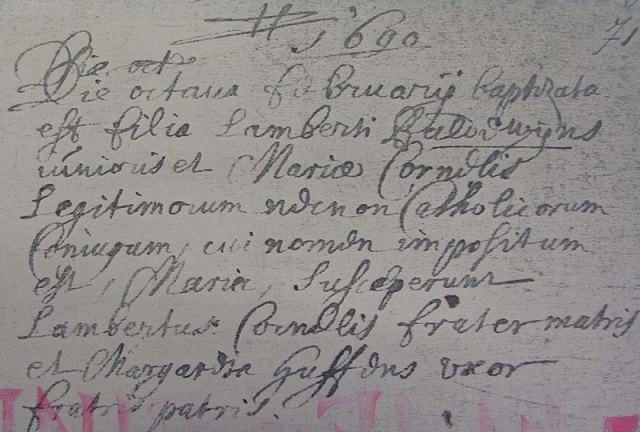 1690 71
Die oct
Die octava februarij baptizata
est filia Lamberti
iunioris et Mariæ Cornelis
Legitimorum necnon Catholicorum
Coniugum, cui nomen impositum
est, Maria, susceperunt
Lambertus Cornelis frater matris
et Margareta uxor
fratris patris.